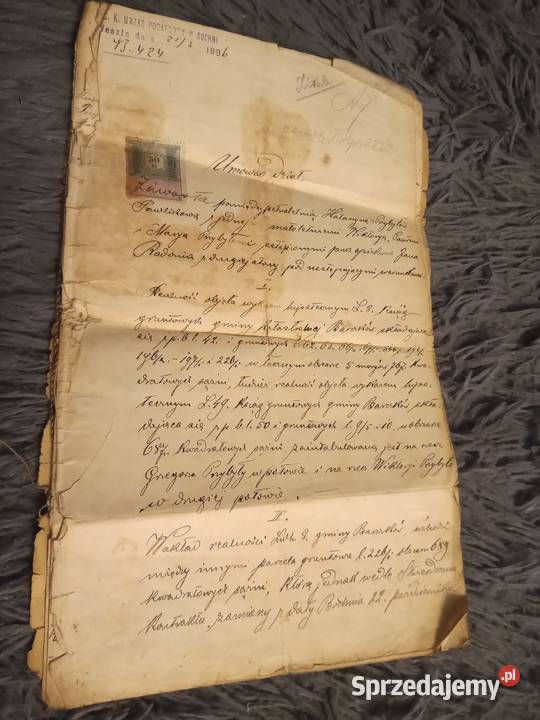 C. K. URZĄD PODATKOWY W BOCHNI
Weszło dnia 21/3 1896
50
Umowa o dział
Zawarta pomiędzy pełnoletnią Katarzyną Przybyło
Pawlikową z jednej małoletniemi Wiktoryą,
i Maryą Przybyłami zastąpionymi przez opiekuna Jana
Radonia z drugiej strony pod następującymi warunkami.
I.
Realność objęta wykazem hipotecznym L. 8. Ksiąg
gruntowych gminy katastralnej Baczków składająca
się z p. b. l. 42. i gruntowych l.
i 226/1 w łącznym obszarze 5 morgów Kwa-
dratowych sążni, tudzież realność objęta wykazem hipo-
tecznym L. 49. Ksiąg gruntowych gminy Baczków skła-
dająca się z p. b. l. 50 i gruntowych l. 9/5 i 10. w obszarze
kwadratowych sążni zaintabulowana jest na rzecz
Gregora Przybyły w połowie i na rzecz Wiktoryi Przybyło
w drugiej połowie.
II.
W skład realności Lwh. 8. gminy Baczków wchodzi
między innymi parcela gruntowa l. 226/1 obszaru 689
kwadratowych sążni, którą jednak wedle
Kontraktu zamiany z daty Bochnia 22. października
Sprzedajemy.pl